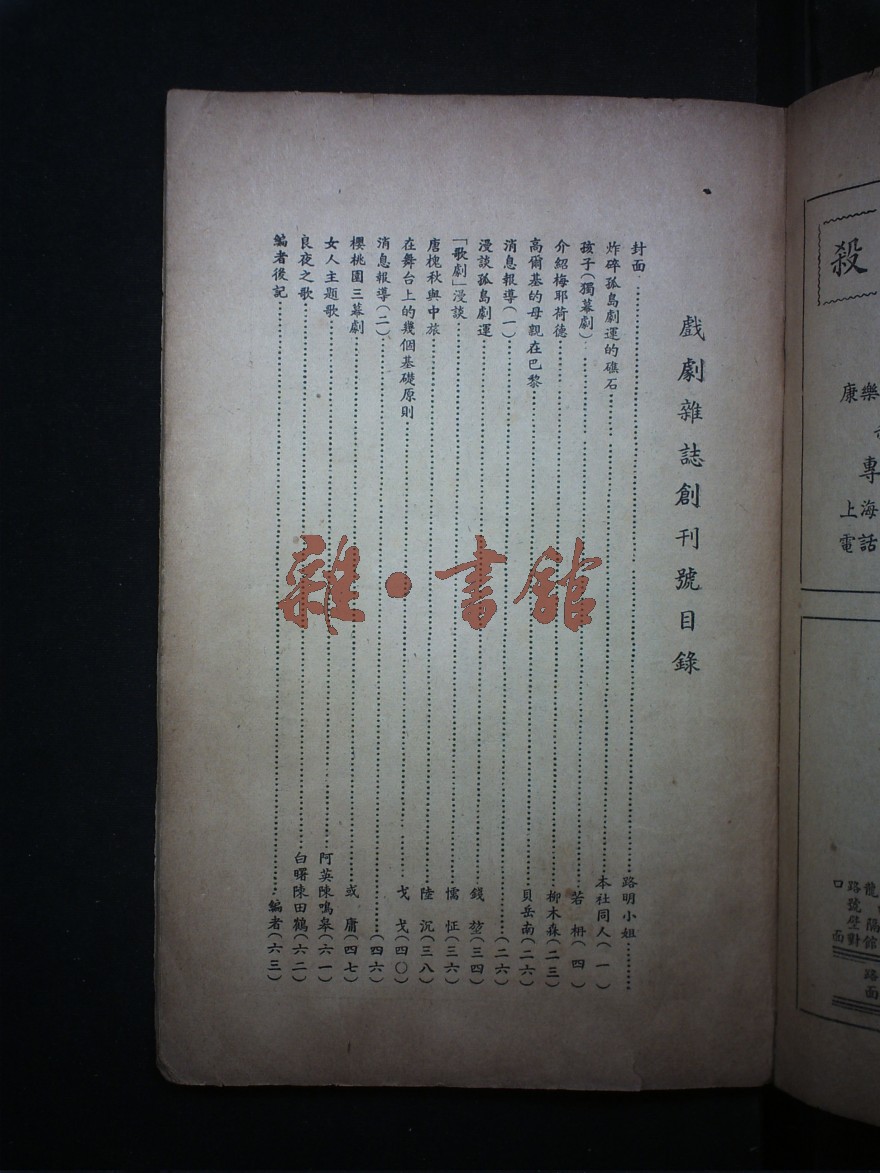 殺
康樂
專
上海
電話
龍
隔
館
路號壁對
口
面
路面
戲劇雜誌創刊號目錄
封面…………路明小姐…………
炸碎孤島劇運的礁石…………本社同人(一)
孩子(獨幕劇)…………若枬(四)
介紹梅耶荷德…………柳木森(二三)
高爾基的母親在巴黎…………貝岳南(二六)
消息報導(一)…………(二六)
漫談孤島劇運…………錢堃(三四)
「歌劇」漫談…………懦怔(三六)
唐槐秋與中旅…………陸沉(三八)
在舞台上的幾個基礎原則…………戈戈(四〇)
消息報導(二)…………(四六)
櫻桃園三幕劇…………或庸(四七)
女人主題歌…………阿英陳鳴皋(六一)
良夜之歌…………白曙陳田鶴(六二)
編者後記…………編者(六三)
雜·書館